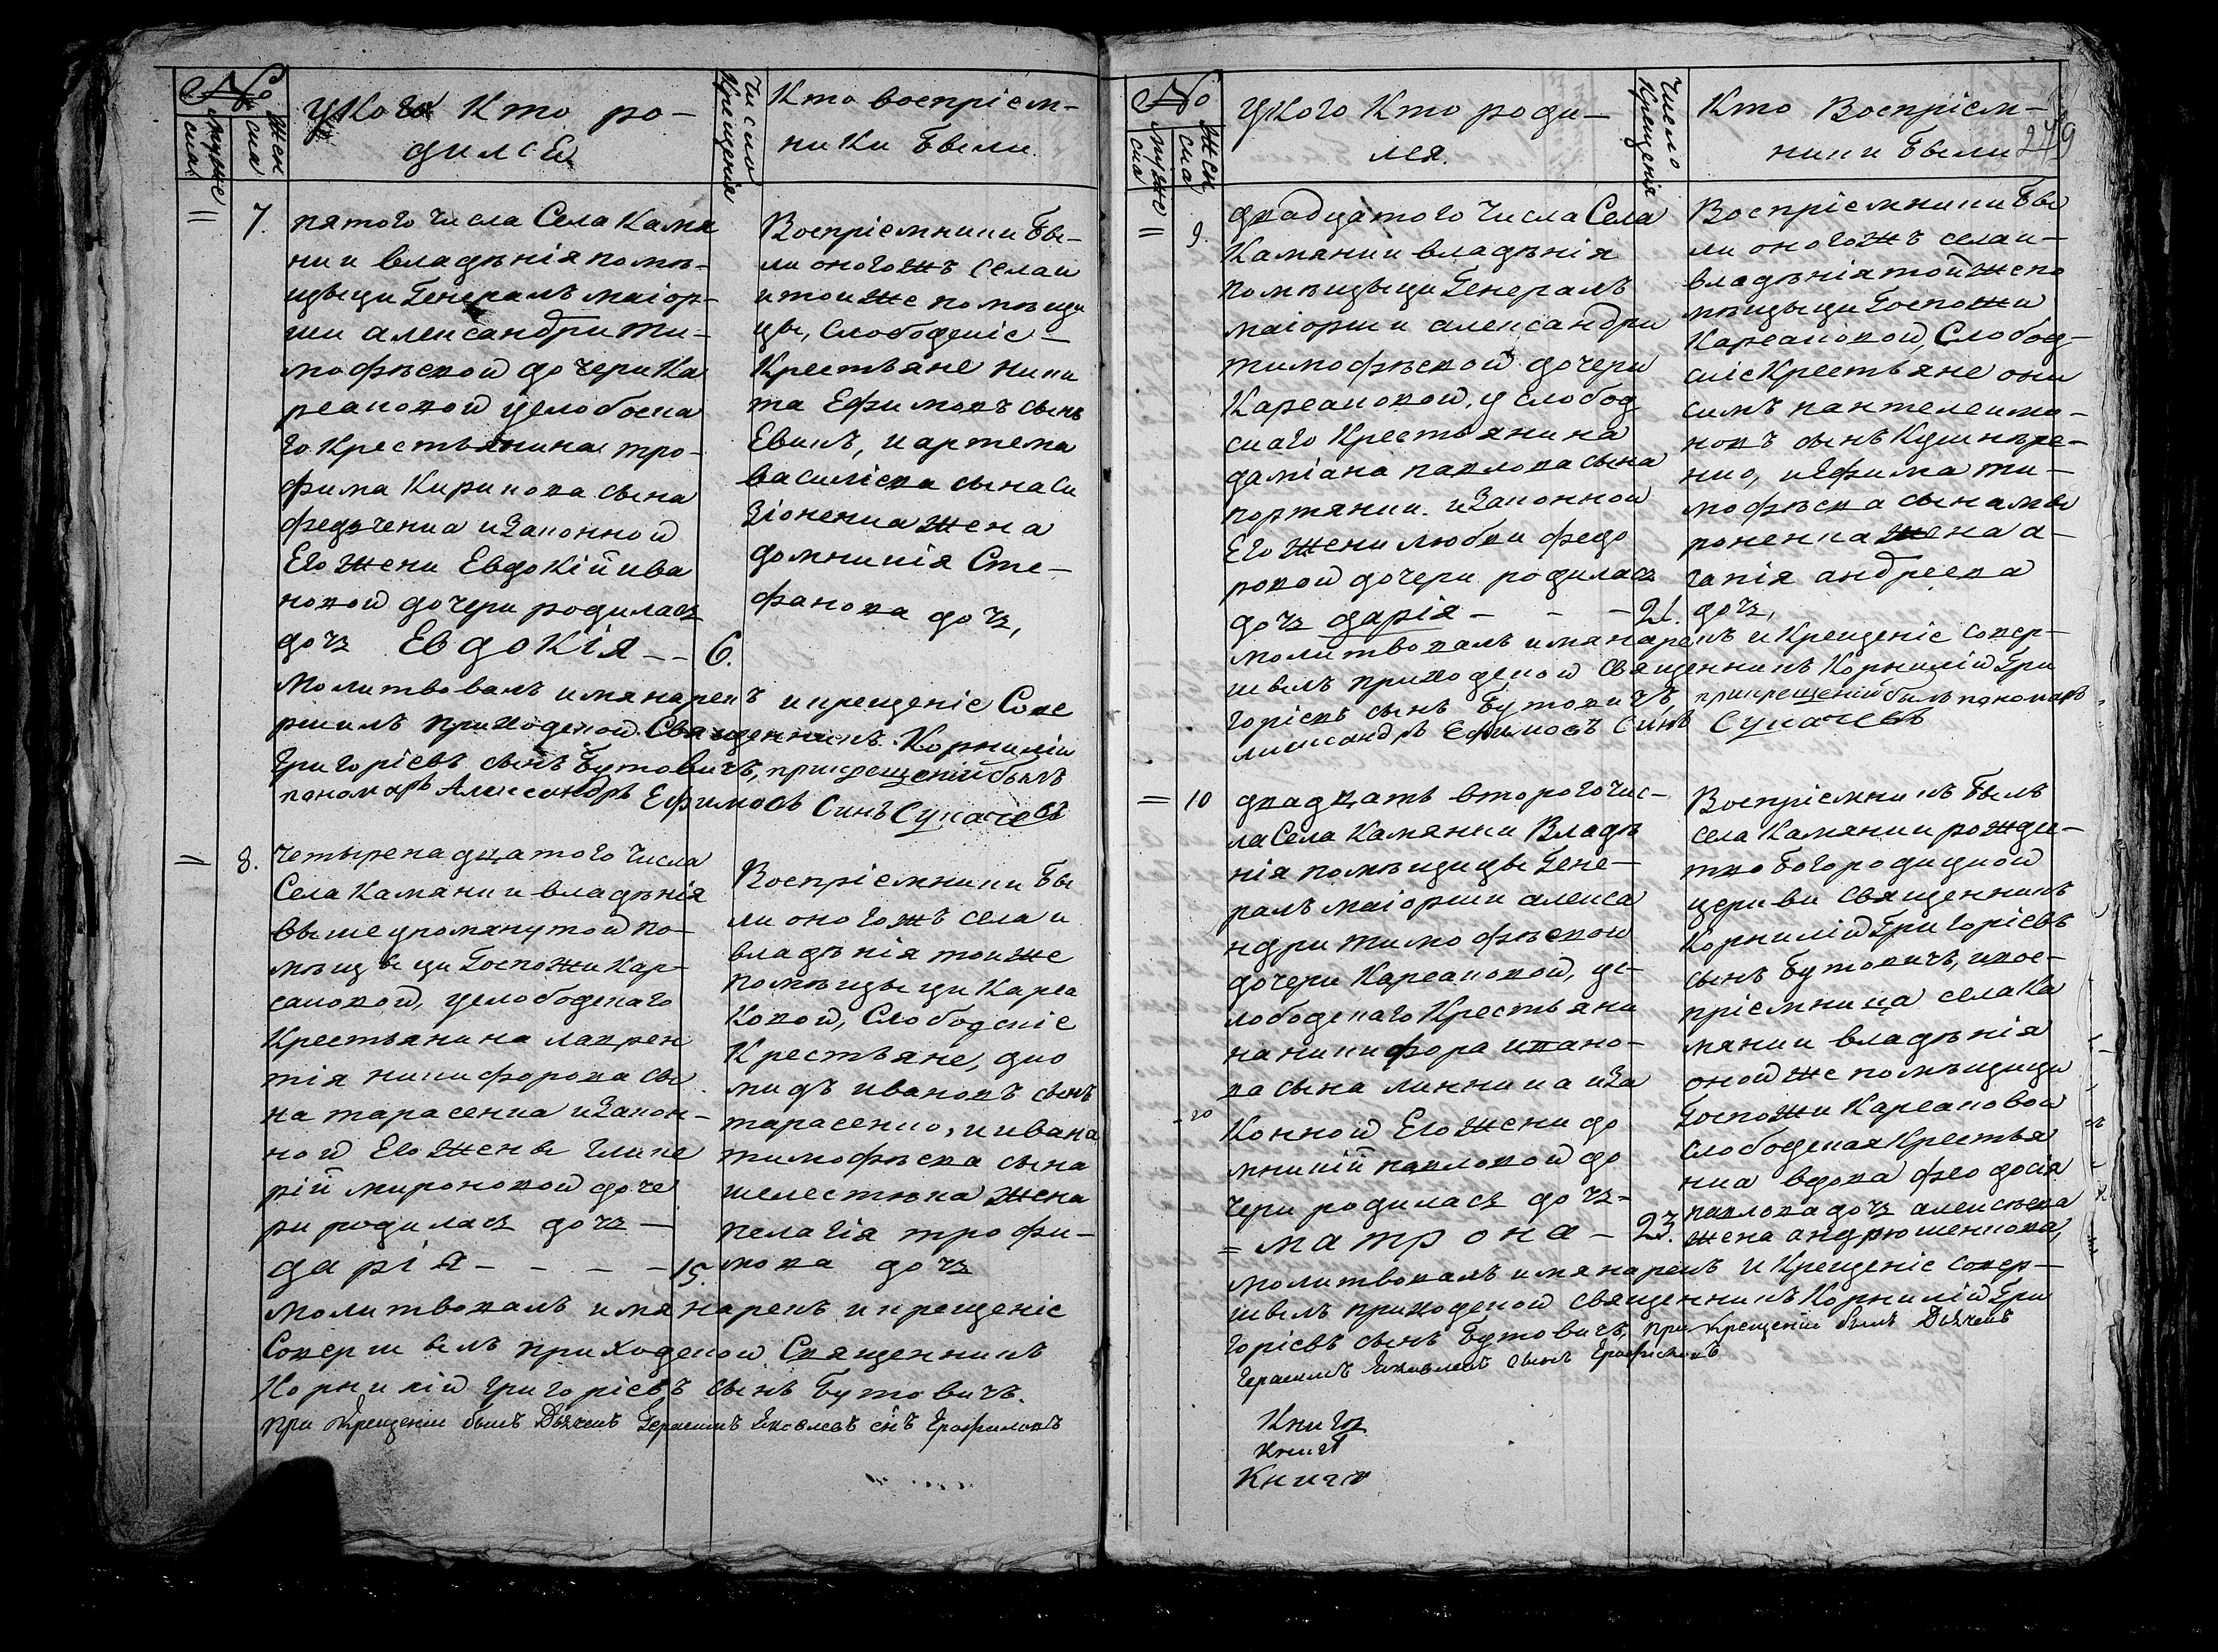 №
мужеска
женска
У Кого Кто ро-
дился
Число
Крещенія
Кто воспріем-
ники были.
=
7.
пятого числа Села Камя
нки владѣнія помѣ-
щыци Генералъ маіор-
ши александри ти-
мофѣевой дочери Ка
рсаковой услобоска
го Крестьянина тро-
фима Кирилова сына
федьченка изаконной
Его жени Евдокій ива
новой дочери родилась
дочь Евдокія - - 6.
Воспріемники бы-
ли оногожъ села и
и тои же помѣщи
цы, Слободскіе
Крестьяне ники
та Ефимовъ сынъ
Евикъ, и артема
василіева сына Си
зіоненка жена
домникія Сте-
фанова дочь,
Молитвовалъ имянарекъ и крещеніе Сове
ршилъ приходской Священникъ Корнилій
Григоріевъ сынъ Бутовичъ, при крещеній былъ
паномарь Александръ Ефимовъ Синъ Сукачевъ
=
8.
четыренадцатого числа
Села Камянки владѣнія
вышеупомянутой по-
мѣщыци Госпожи Кар-
саковой, услободскаго
Крестьянина лаврен
тія никифорова сы
на тарасенка изакон-
ной Его жены глике
рій мироновой доче
ри родилась дочь -
дарія - - - - 15.
Воспріемники бы
ли оногожъ села и
владѣнія тои же
помѣщыци Карса
ковой, Слободскіе
Крестьяне, дио
мидъ ивановъ сынъ
тарасенко, и ивана
тимофѣева сына
шелестюка жена
пелагія трофи-
мова дочь
Молитвовалъ имя нарекъ и крещеніе
Совершылъ приходской Священникъ
Корнилій Григоріевъ сынъ Бутовичъ.
при крещеніи былъ Дьячекъ Герасимъ Яковлевъ сн҃ъ Ерофимовъ
№
мужеска
женска
У Кого Кто роди-
лся.
Число
Крещенія
Кто Воспріем-
ники были
249
=
9.
двадцатого числа Села
Камянки владѣнія
помѣщыци Генералъ
маіорши александри
тимофѣевой дочери
Карсаковой, услобод
скаго Крестьянина
даміана павлова сына
портянки. изаконной
Его жени любви федо
ровой дочери родилась
дочь дарія - - - 21.
Воспріемники бы
ли оногожъ села и-
владѣнія той же по
мѣщыци Госпожи
Карсаковой, Слобод-
скіе Крестьяне они
симъ пантелеимо-
новъ сынъ Кушнѣре-
нко, и Ефима ти-
мофѣева сына мы
роненка жена а-
гапія андреева
дочь,
молитвовалъ имянарекъ и Крещеніе совер-
шылъ приходской Священникъ Корнилій Гри
горіевъ сынъ Бутовичъ, прикрещеній былъ паномарь
александръ Ефимовъ Синъ Сукачевъ
=
10
двадцать второго чис-
ла Села Камянки Владѣ
нія помѣщицы Гене-
ралъ маіорши алекса
ндри тимофѣевой
дочери Карсаковой, ус-
лободскаго Крестьяни
на никифора ивано-
ва сына линника иза
конной Его жени до
мникій павловой до
чери родилась дочь -
= матрона - 23.
Воспріемникъ былъ
села Камянки рожде-
тво Богородицкой
церкви священникъ
Корнилій Григоріевъ
сынъ Бутовичъ, ивос-
пріемница села Ка
мянки владѣнія
оной же помѣщици
Госпожи Карсаковой
слободская Крестья
нка вдова феодосія
павлова дочь алексѣева
жена андрюшенкова,
молитвовалъ имянарекъ и Крещеніе совер-
шылъ приходской священникъ Корнилій Гри
горіевъ сынъ Бутовичъ, при крещеніи былъ Дьячекъ
Герасимъ Яковлевъ сынъ Ерофимовъ
Книга
книга
Книга